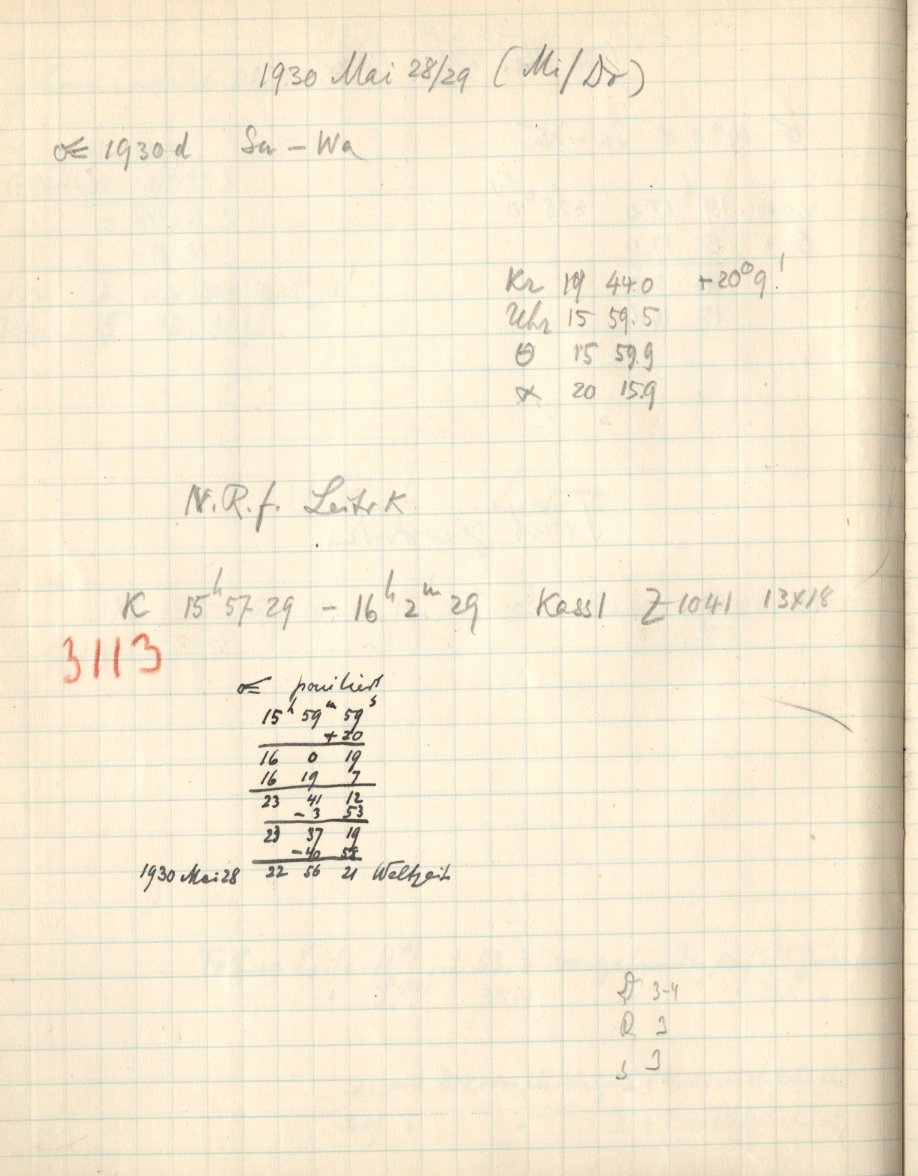 1930 Mai 28/29 (Mi/Do)
☄ 1930 d Su – Wa
Kr 19 44.0 +20° 9!
Uhr 15 59.5
Θ 15 59.9
α 20 15.9
N.R.f. Leitrk
K 15h 57 29 – 16h 2m 29 Kass 1 Z 1041 13x18
3113
☄
15h 59m 59s
+20
16 0 19
16 19 7
23 41 12
– 3 53
23 37 19
– 40 58
1930 Mai 28 22 56 21 Weltzeit
D 3-4
R 3
S 3